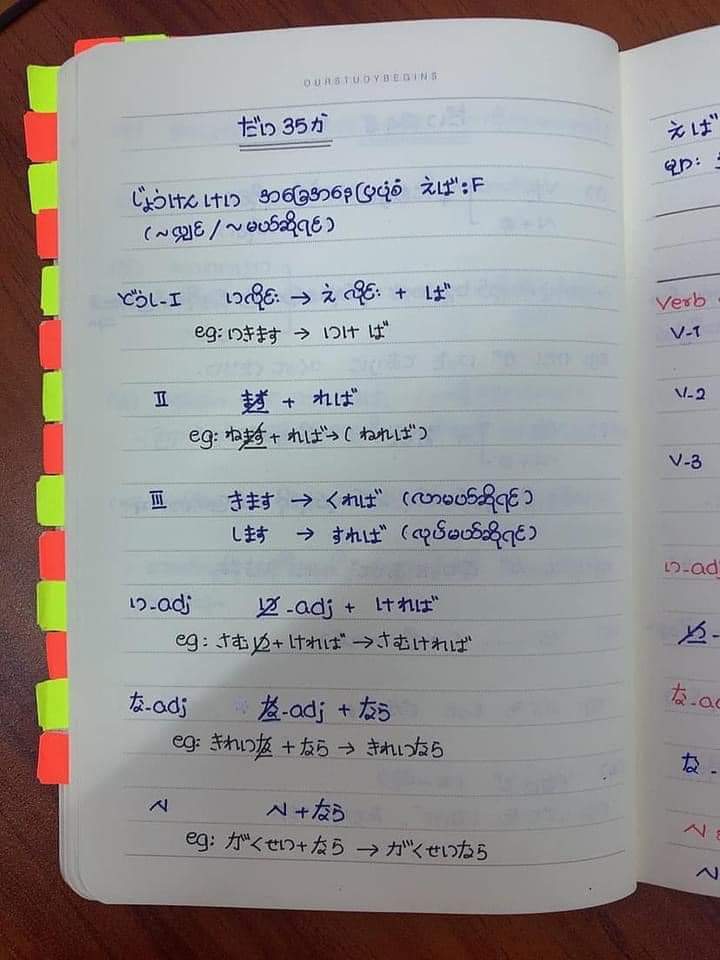 OURSTUDYBEGINS
だい 35 か
じょうけん けい အခြေအနေပြပုံစံ えば : F
(~လျှင် / ~ မယ်ဆိုရင်)
どうし-I い လိုင်း → え လိုင်း + ば
eg: いきます → いけ ば
II ます + れば
eg: ねます + れば → ( ねれば )
III きます → くれば (လာမယ်ဆိုရင်)
します → すれば (လုပ်မယ်ဆိုရင်)
い-adj い-adj + ければ
eg: さむい + ければ → さむければ
な-adj な-adj + なら
eg: きれいな + なら → きれいなら
N N + なら
eg: がくせい + なら → がくせいなら
えば
Verb
V-1
V-2
V-3
い-ad
い-
な-ad
な -
N
N